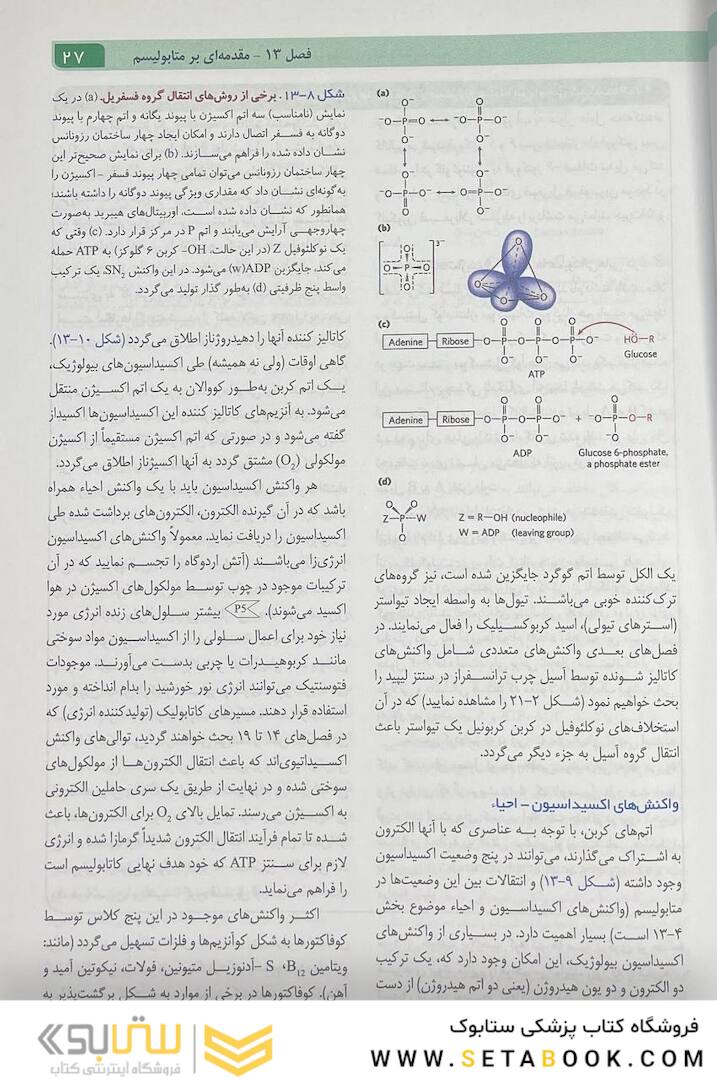 ۲۷
فصل ۱۳ - مقدمه‌ای بر متابولیسم
شکل ۸-۱۳. برخی از روش‌های انتقال گروه فسفریل. (a) در یک
نمایش (نامناسب) سه اتم اکسیژن با پیوند یگانه و اتم چهارم با پیوند
دوگانه به فسفر اتصال دارند و امکان ایجاد چهار ساختمان رزونانس
نشان داده شده را فراهم می‌سازند. (b) برای نمایش صحیح‌تر این
چهار ساختمان رزونانس می‌توان تمامی چهار پیوند فسفر - اکسیژن را
به‌گونه‌ای نشان داد که مقداری ویژگی پیوند دوگانه را داشته باشند؛
همانطور که نشان داده شده است، اوربیتال‌های هیبرید به‌صورت
چهاروجهی آرایش می‌یابند و اتم P در مرکز قرار دارد. (c) وقتی که
یک نوکلئوفیل Z (در این حالت، OH- کربن ۶ گلوکز) به ATP حمله
می‌کند، جایگزین ADP(w) می‌شود. در این واکنش SN2، یک ترکیب
واسط پنج ظرفیتی (d) به‌طور گذار تولید می‌گردد.
(a)
O⁻ O
⁻O—P=O ↔ ⁻O—P—O⁻
O⁻ O⁻
O⁻ O⁻
⁻O—P—O⁻ ↔ O=P—O⁻
O O⁻
(b)
O
O P O
O
3−
O
O O O
(c)
Adenine Ribose —O—P—O—P—O—P—O⁻ HÖ—R
O O O
O⁻ O⁻ O⁻
Glucose
ATP
Adenine Ribose —O—P—O—P—O⁻ + ⁻O—P—O—R
O O O
O⁻ O⁻ O⁻
ADP Glucose 6-phosphate,
a phosphate ester
(d)
O O
Z—P—W
O
Z = R—OH (nucleophile)
W = ADP (leaving group)
یک الکل توسط اتم گوگرد جایگزین شده است، نیز گروه‌های
ترک‌کننده خوبی می‌باشند. تیول‌ها به واسطه ایجاد تیواستر
(استرهای تیولی)، اسید کربوکسیلیک را فعال می‌نمایند. در
فصل‌های بعدی واکنش‌های متعددی شامل واکنش‌های
کاتالیز شونده توسط آسیل چرب ترانسفراز در سنتز لیپید را
بحث خواهیم نمود (شکل ۲-۲۱ را مشاهده نمایید) که در آن
استخلاف‌های نوکلئوفیل در کربن کربونیل یک تیواستر باعث
انتقال گروه آسیل به جزء دیگر می‌گردد.
واکنش‌های اکسیداسیون - احیاء
اتم‌های کربن، با توجه به عناصری که با آنها الکترون
به اشتراک می‌گذارند، می‌توانند در پنج وضعیت اکسیداسیون
وجود داشته (شکل ۹-۱۳) و انتقالات بین این وضعیت‌ها در
متابولیسم (واکنش‌های اکسیداسیون و احیاء موضوع بخش
۴-۱۳ است) بسیار اهمیت دارد. در بسیاری از واکنش‌های
اکسیداسیون بیولوژیک، این امکان وجود دارد که، یک ترکیب
دو الکترون و دو یون هیدروژن (یعنی دو اتم هیدروژن) از دست
کاتالیز کننده آنها را دهیدروژناز اطلاق می‌گردد (شکل ۱۰-۱۳).
گاهی اوقات (ولی نه همیشه) طی اکسیداسیون‌های بیولوژیک،
یک اتم کربن به‌طور کووالان به یک اتم اکسیژن منتقل
می‌شود. به آنزیم‌های کاتالیز کننده این اکسیداسیون‌ها اکسیداز
گفته می‌شود و در صورتی که اتم اکسیژن مستقیماً از اکسیژن
مولکولی (O₂) مشتق گردد به آنها اکسیژناز اطلاق می‌گردد.
هر واکنش اکسیداسیون باید با یک واکنش احیاء همراه
باشد که در آن گیرنده الکترون، الکترون‌های برداشت شده طی
اکسیداسیون را دریافت نماید. معمولاً واکنش‌های اکسیداسیون
انرژی‌زا می‌باشند (آتش اردوگاه را تجسم نمایید که در آن
ترکیبات موجود در چوب توسط مولکول‌های اکسیژن در هوا
اکسید می‌شوند). P5 بیشتر سلول‌های زنده انرژی مورد
نیاز خود برای اعمال سلولی را از اکسیداسیون مواد سوختی
مانند کربوهیدرات یا چربی بدست می‌آورند. موجودات
فتوسنتیک می‌توانند انرژی نور خورشید را بدام انداخته و مورد
استفاده قرار دهند. مسیرهای کاتابولیک (تولیدکننده انرژی) که
در فصل‌های ۱۴ تا ۱۹ بحث خواهند گردید، توالی‌های واکنش
اکسیداتیوی‌اند که باعث انتقال الکترون‌ها از مولکول‌های
سوختی شده و در نهایت از طریق یک سری حاملین الکترونی
به اکسیژن می‌رسند. تمایل بالای O₂ برای الکترون‌ها، باعث
شده تا تمام فرآیند انتقال الکترون شدیداً گرمازا شده و انرژی
لازم برای سنتز ATP که خود هدف نهایی کاتابولیسم است
را فراهم می‌نماید.
اکثر واکنش‌های موجود در این پنج کلاس توسط
کوفاکتورها به شکل کوآنزیم‌ها و فلزات تسهیل می‌گردد (مانند:
ویتامین B₁₂، S -آدنوزیل متیونین، فولات، نیکوتین آمید و
آهن). کوفاکتورها در برخی از موارد به شکل برگشت‌پذیر به
فروشگاه کتاب پزشکی ستابوک
WWW.SETABOOK.COM
ستابوک
فروشگاه اینترنتی کتاب